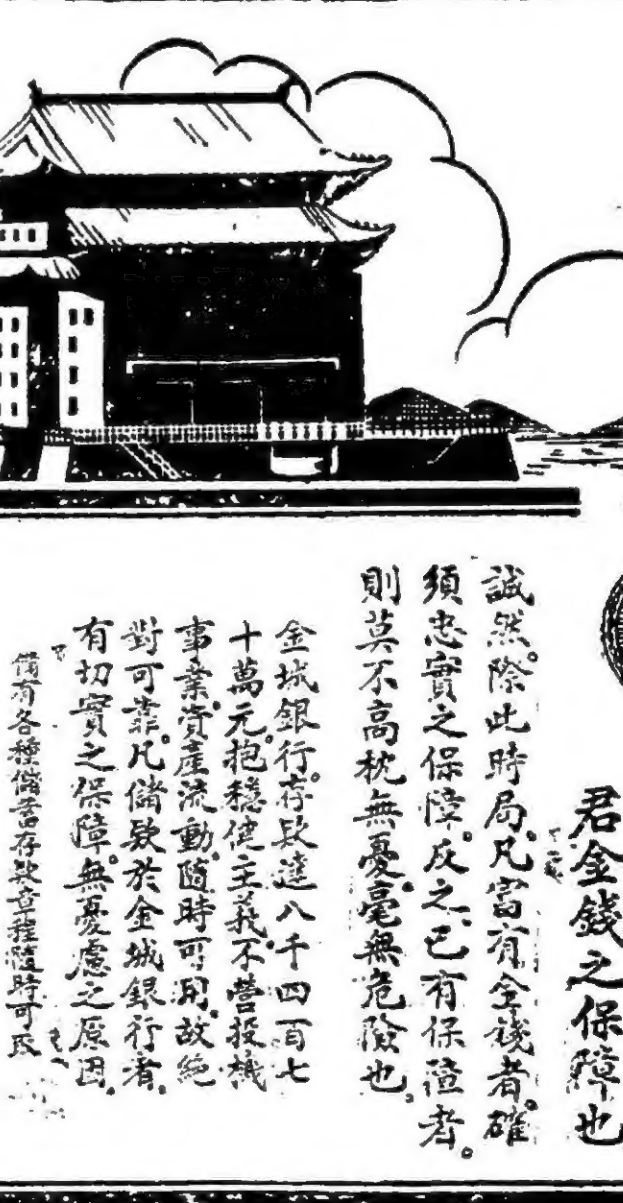 君金錢之保障也
誠然。除此時局。凡富有金錢者。確
須忠實之保障。反之、已有保障者。
則莫不高枕無憂。毫無危險也。
金城銀行。存欵達八千四百七
十萬元。抱穩健主義。不營投機
事業。資產流動。隨時可用。故絕
對可靠。凡儲欵於金城銀行者。
有切實之保障。無憂慮之原因。
備有各種儲蓄存欵章程隨時可取